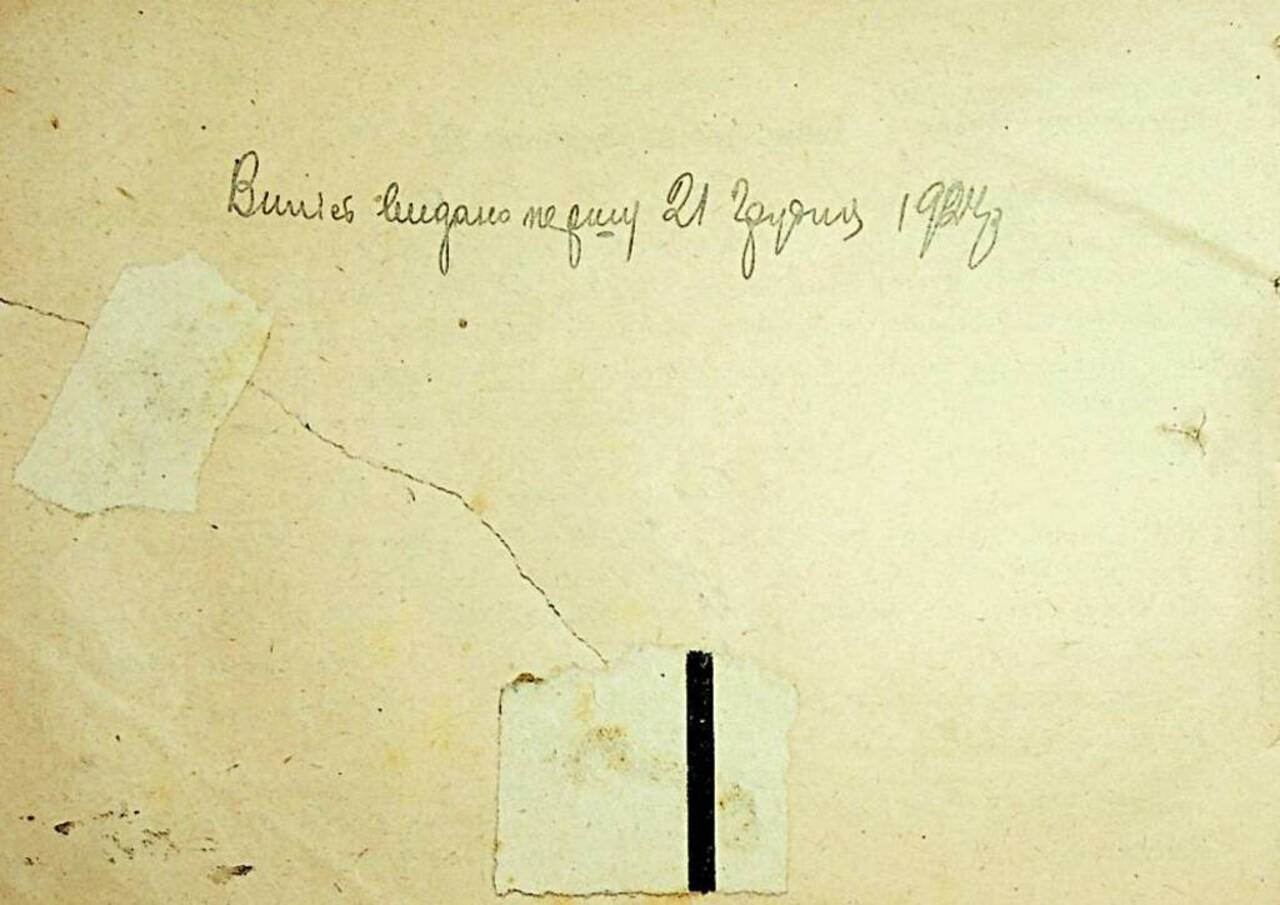 Випис видано першу 21 Грудня 1924 р